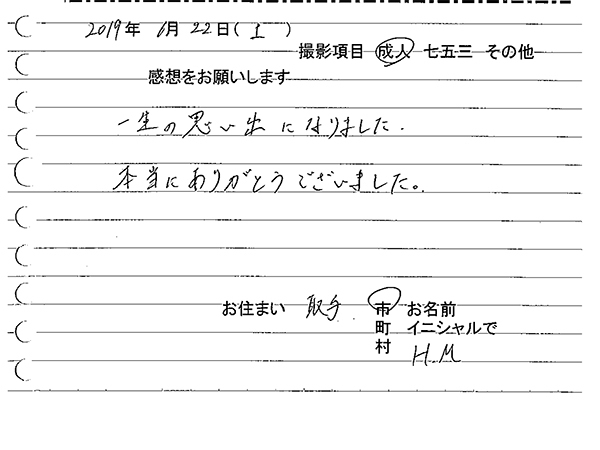 2019年 6月 22日(土)
撮影項目 成人 七五三 その他
感想をお願いします
一生の思い出になりました.
本当にありがとうございました。
お住まい 取手 市 お名前
町 イニシャルで
村 H.M